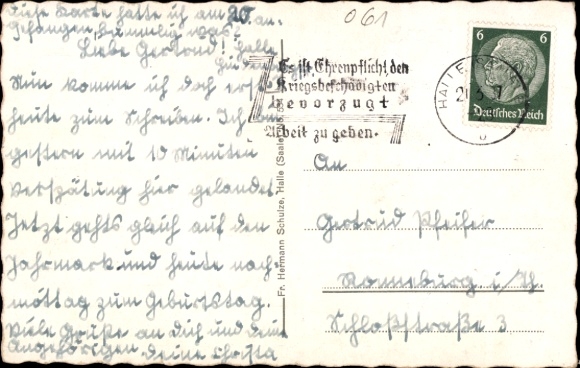 Diese Karte hatte ich am 20. an-
gefangen, kam
Liebe Gertrud! Halle
Nun komme ich doch erst
heute zum Schreiben. Ich bin
gestern mit 10 Minuten
Verspätung hier gelandet.
Jetzt gehts gleich auf den
Jahrmark und heute nach-
mittag zum Geburtstag.
Viele Grüße an Dich und deine
Angehörigen. Deine Christa
061
Es ist Ehrenpflicht, den
Kriegsbeschädigten
bevorzugt
Arbeit zu geben.
HALLE
6 6
Deutsches Reich
Fr. Hermann Schulze, Halle (Saale)
An
Gertrud Pfeifer
Ronneburg i. Th.
Schloßstraße 3